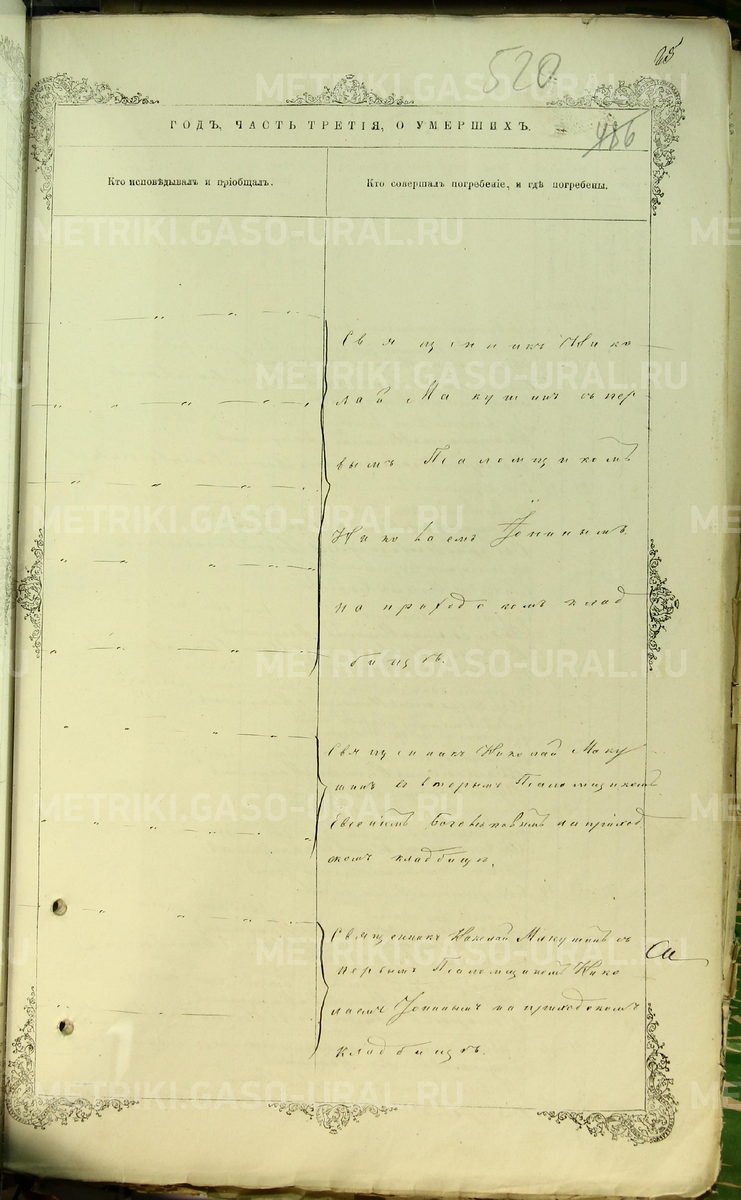 25
520
486
ГОДЪ, ЧАСТЬ ТРЕТІЯ, О УМЕРШИХЪ.
Кто исповѣдывалъ и пріобщалъ.
Кто совершалъ погребеніе, и гдѣ погребены.
Священникъ Нико
лай Макушинъ съ пер
вымъ Псаломщикомъ
Николаемъ Іонинымъ
на приходскомъ клад
бищѣ.
Священникъ Николай Маку
шинъ со вторымъ Псаломщикомъ
на приход
скомъ кладбищѣ.
Священникъ Николай Макушинъ съ
первымъ Псаломщикомъ Нико
лаемъ Іонинымъ на приходскомъ
кладбищѣ.
METRIKI.GASO-URAL.RU